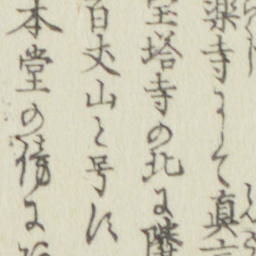 楽寺にて真言
宝塔寺の北に隣
百丈山と号す
本堂の傍に